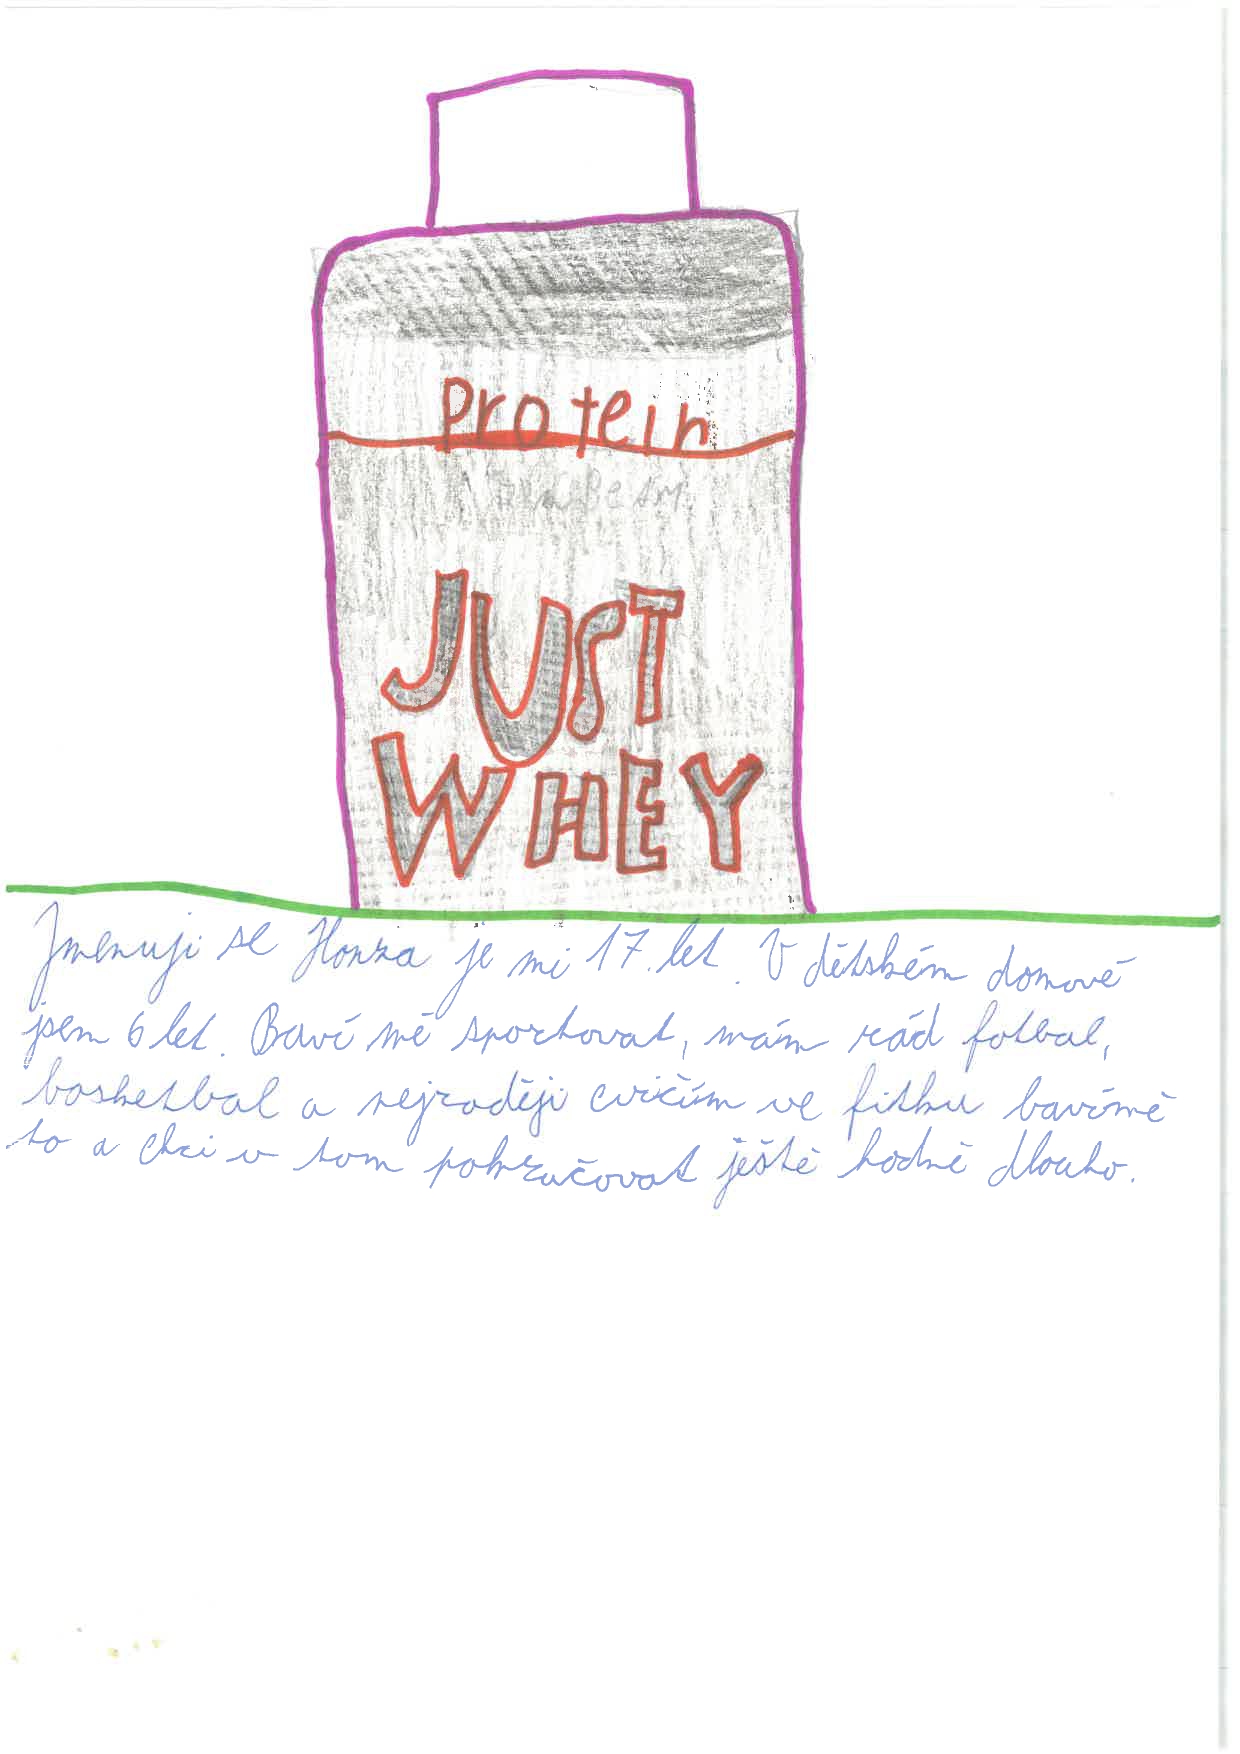 Protein
JUST
WHEY
Jmenuji se Honza je mi 17. let. V dětském domově
jsem 6 let. Baví mě sportovat, mám rád fotbal,
basketbal a nejraději cvičím ve fitku bavímě
to a chci v tom pokračovat ještě hodně dlouho.